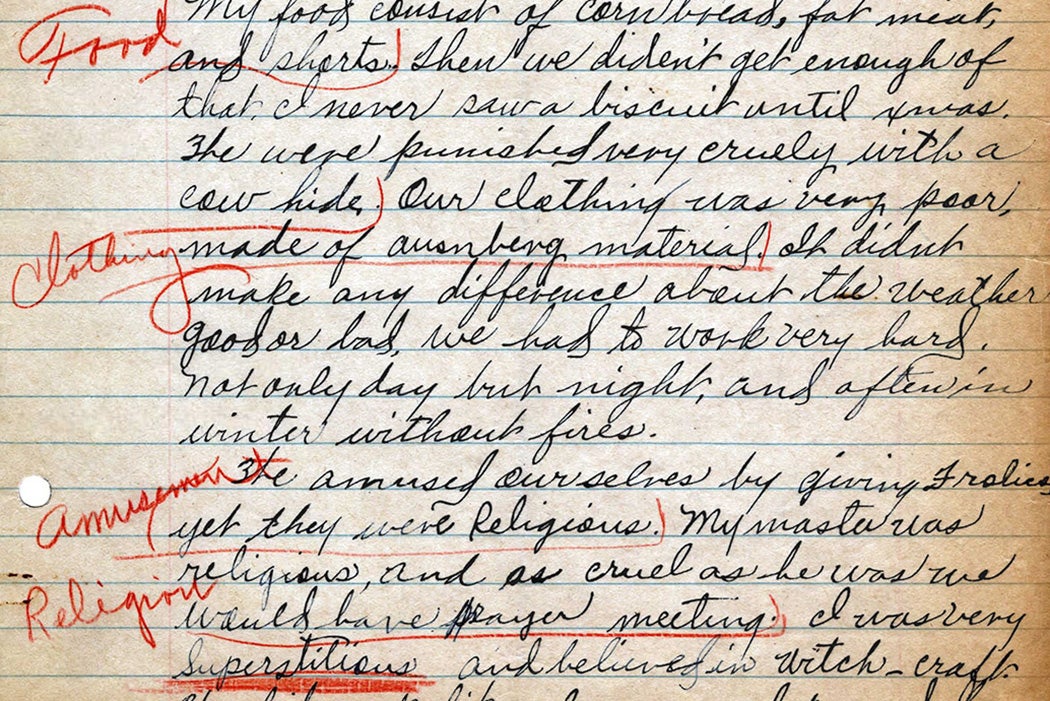 Food
My food consist of corn bread, fat meat,
and shorts. Then we diden't get enough of
that. I never saw a biscuit until xmas.
We were punished very cruely with a
cow hide. Our clothing was very poor,
Clothing
made of ausnberg material. It didnt
make any difference about the weather
good or bad, we had to work very hard.
not only day but night, and often in
winter without fires.
Amusement
We amused ourselves by giving Frolics
yet they were Religious. My master was
religious, and as cruel as he was we
Religion
would have prayer meeting. I was very
Superstitious and believed in witch-craft.